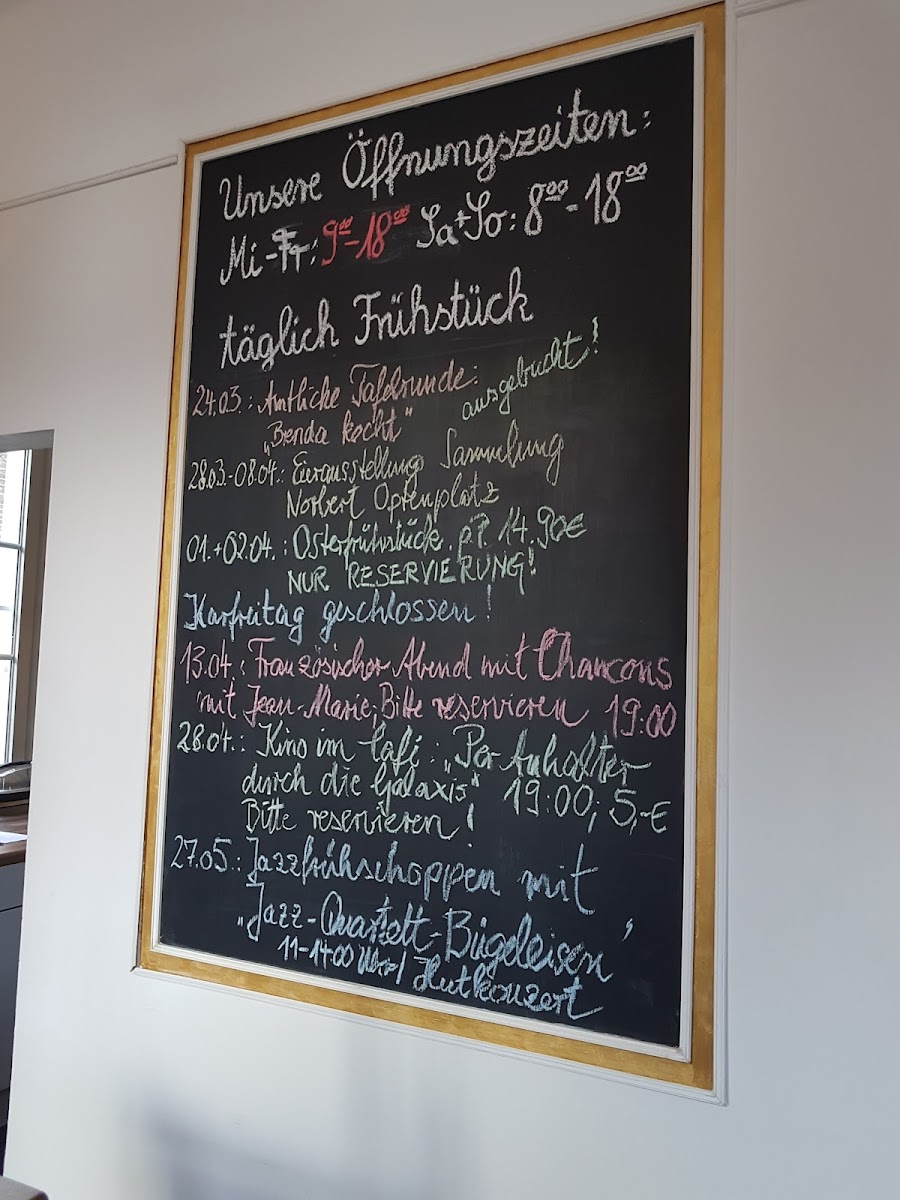 Unsere Öffnungszeiten:
Mi-Fr: 9⁰⁰-18⁰⁰ Sa+So: 8⁰⁰-18⁰⁰
täglich Frühstück
24.03.: Amtliche Tafelrunde:
„Benda kocht" ausgebucht!
28.03.-08.04.: Eierausstellung Sammlung
Norbert Opfenplatz
01.+02.04.: Osterfrühstück p.P. 14,90€
NUR RESERVIERUNG!
Karfreitag geschlossen!
13.04.: Französischer Abend mit Chancons
mit Jean-Marie; Bitte reservieren 19:00
28.04.: Kino im Café: „Per Anhalter
durch die Galaxis" 19:00; 5,-€
Bitte reservieren!
27.05.: Jazzfrühschoppen mit
„Jazz-Quartett-Bügeleisen"
11-14:00 Uhr / Hutkonzert